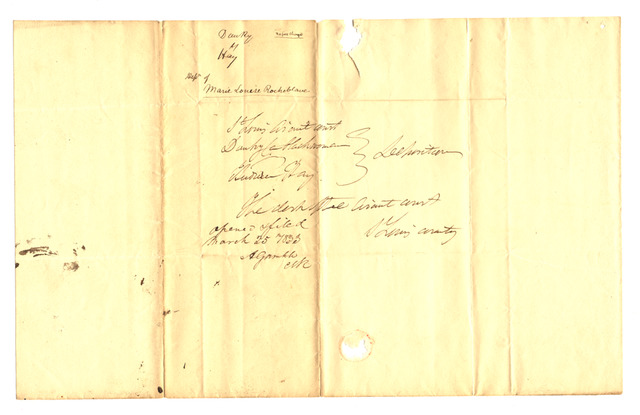 Danky
vs
Hay
Dep. of
Marie Louise Rocheblave
St Louis Circuit court
Danky
Andrew Hay
Deposition
The clerk of the Circuit court
St Louis county
opened & filed
March 25 1833
A Gamble
Clk